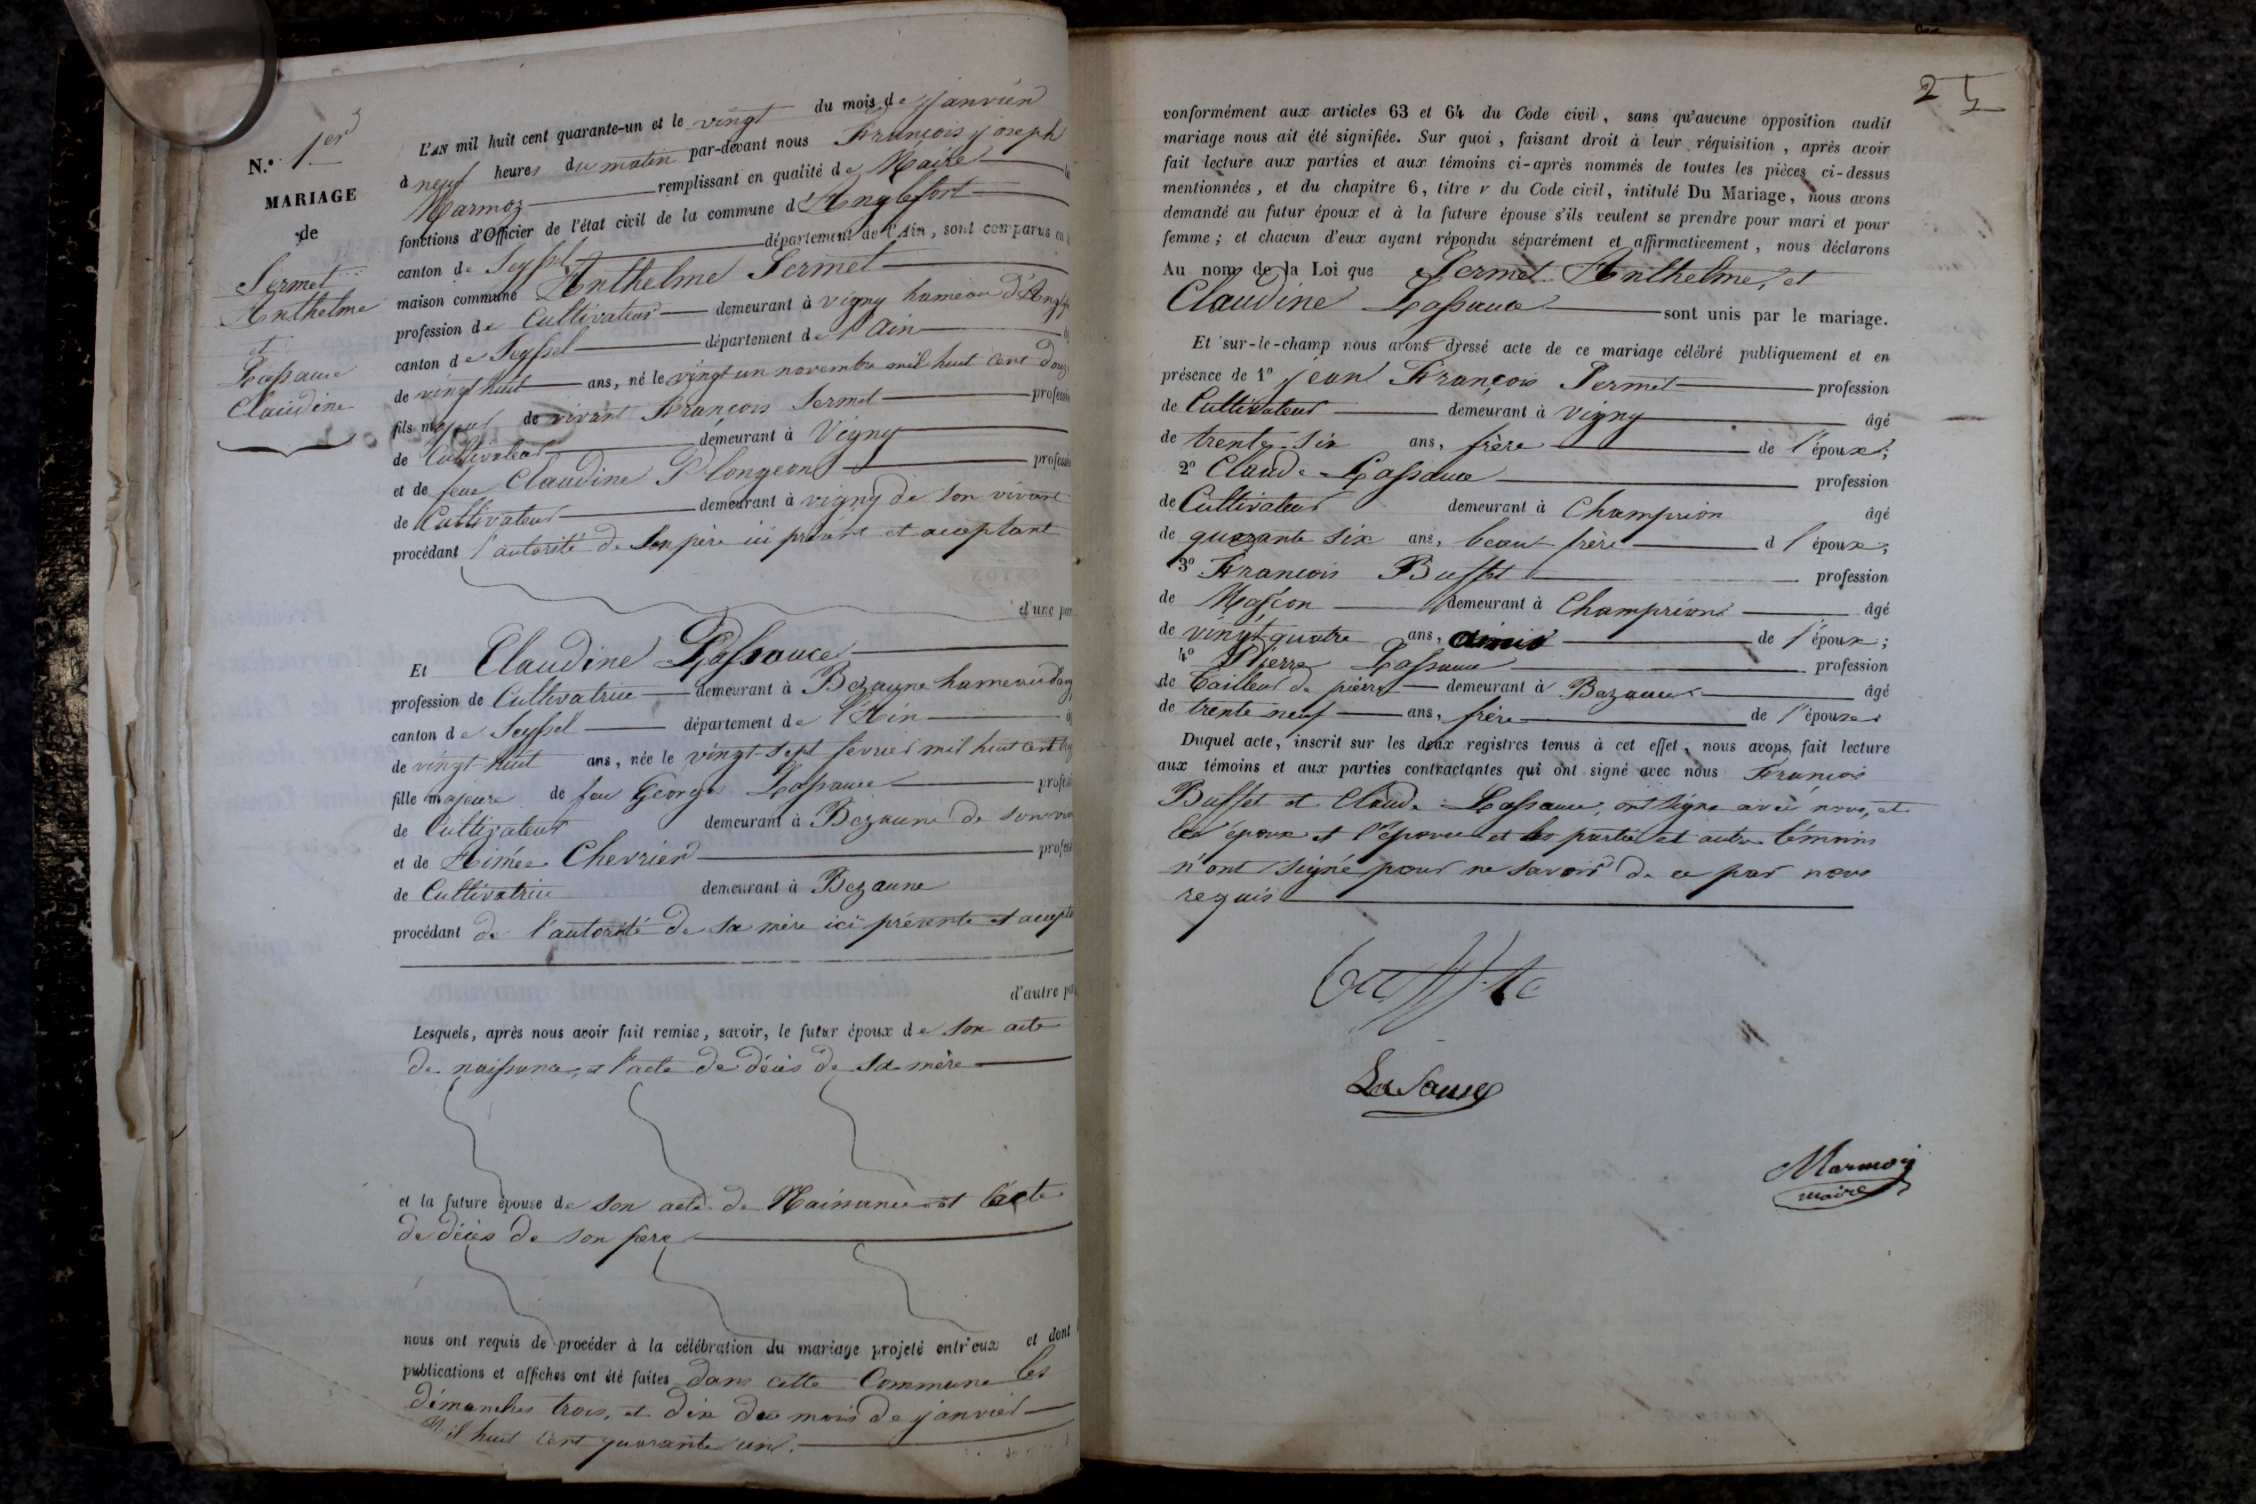 N.° 1er
MARIAGE
de
Sermet
Anthelme
et
Lassauce
Claudine
L'AN mil huit cent quarante-un et le vingt du mois de janvier
à neuf heures du matin par-devant nous François joseph
Marmoz remplissant en qualité de Maire
fonctions d'Officier de l'état civil de la commune d'Anglefort
canton de Seyssel département de l'Ain, sont comparus en
maison commune Anthelme Sermet
profession de Cultivateur demeurant à vigny hameau d'Angle
canton de Seyssel département de l'Ain
de vingt huit ans, né le vingt un novembre mil huit cent douz
fils majeur de vivant François Sermet profession
de Cultivateur demeurant à Vigny
et de feue Claudine Plongeon profession
de Cultivateur demeurant à vigny de son vivant
procédant l'autorité de son père ici présent et acceptant
d'une par
Et Claudine Lassauce
profession de Cultivatrice demeurant à Bezaune hameau dang
canton de Seyssel département de l'Ain
de vingt huit ans, née le vingt-sept fevrier mil huit cent
fille majeure de feu George Lassauce profession
de Cultivateur demeurant à Bezaune de son viv
et de Aimée Chevrier profess
de Cultivatrice demeurant à Bezaune
procédant de l'autorité de sa mère ici présente et accepte
d'autre pa
Lesquels, après nous avoir fait remise, savoir, le futur époux de son acte
de naissance, et l'acte de décès de sa mère
et la future épouse de son acte de Naissance et l'acte
de décès de son père
nous ont requis de procéder à la célébration du mariage projeté entr'eux et dont
publications et affiches ont été faites dans cette Commune les
dimanches trois, et dix du mois de janvier
Mil huit cent quarante un.
25
conformément aux articles 63 et 64 du Code civil, sans qu'aucune opposition audit
mariage nous ait été signifiée. Sur quoi, faisant droit à leur réquisition, après avoir
fait lecture aux parties et aux témoins ci-après nommés de toutes les pièces ci-dessus
mentionnées, et du chapitre 6, titre v du Code civil, intitulé Du Mariage, nous avons
demandé au futur époux et à la future épouse s'ils veulent se prendre pour mari et pour
femme; et chacun d'eux ayant répondu séparément et affirmativement, nous déclarons
Au nom de la Loi que Sermet Anthelme, et
Claudine Lassauce sont unis par le mariage.
Et sur-le-champ nous avons dressé acte de ce mariage célébré publiquement et en
présence de 1° jean François Sermet profession
de Cultivateur demeurant à vigny âgé
de trente-six ans, frère de l'époux;
2° Claude Lassauce profession
de Cultivateur demeurant à Champrion âgé
de quarante six ans, beau frère d l'époux;
3° Francois Buffet profession
de Maçon demeurant à Champriond âgé
de vingt quatre ans, amis de l'époux;
4° Pierre Lassauce profession
de Tailleur de pierre demeurant à Bazaune âgé
de trente neuf ans, frère de l'épouse
Duquel acte, inscrit sur les deux registres tenus à cet effet, nous avons fait lecture
aux témoins et aux parties contractantes qui ont signé avec nous François
Buffet et Claude Lassauce, ont signé avec nous, et
les époux et l'épouse et les partie et autre témoins
n'ont signé pour ne savoir de ce par nous
requis
Lasauce
Marmoz
maire